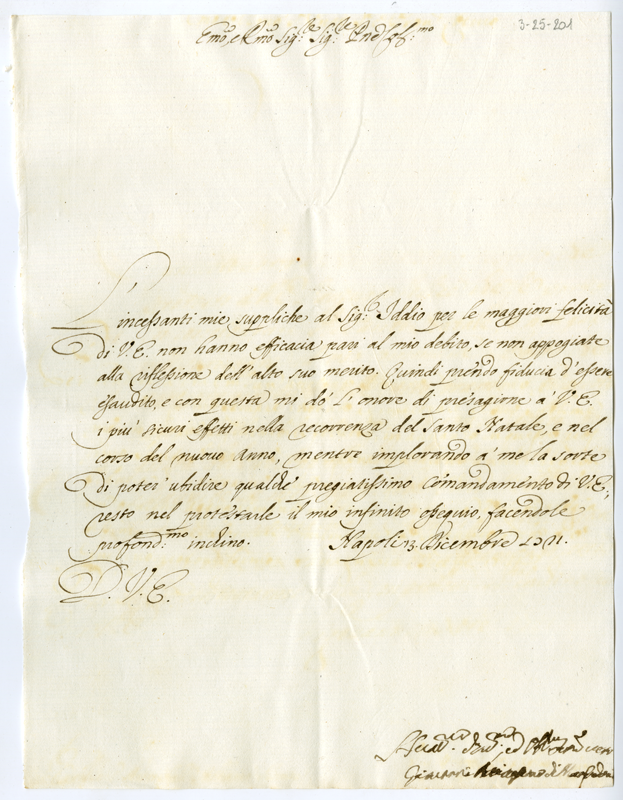 3-25-201
Emo, e Rmo Sig:re Sig:re Pne Col:mo
L'incessanti mie suppliche al Sig:r Iddio per le maggiori felicità
di V.E. non hanno efficacia pari al mio debito, se non appogiate
alla riflessione dell'alto suo merito. Quindi prendo fiducia d'essere
esaudito, e con questa mi do' L'onore di presagirne a' V.E.
i più sicuri effetti nella recorrenza del Santo Natale, e nel
corso del nuovo Anno, mentre implorando a' me la sorte
di poter' ubidire qualche pregiatissimo Comandamento di V.E.,
resto nel protestarle il mio infinito ossequio, facendole
profond:mo inchino. Napoli 13. Dicembre
D. V. E.